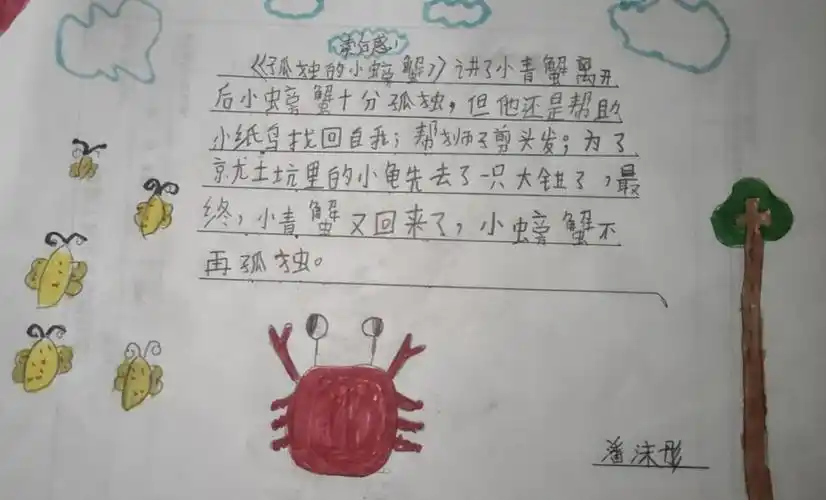 读后感
《孤独的小螃蟹》讲了小青蟹离开
后小螃蟹十分孤独，但他还是帮助
小纸鸟找回自我；帮狮子剪头发；为了
京尤土坑里的小龟失去了一只大钳了，最
终，小青蟹又回来了，小螃蟹不
再孤独。
潘沫彤